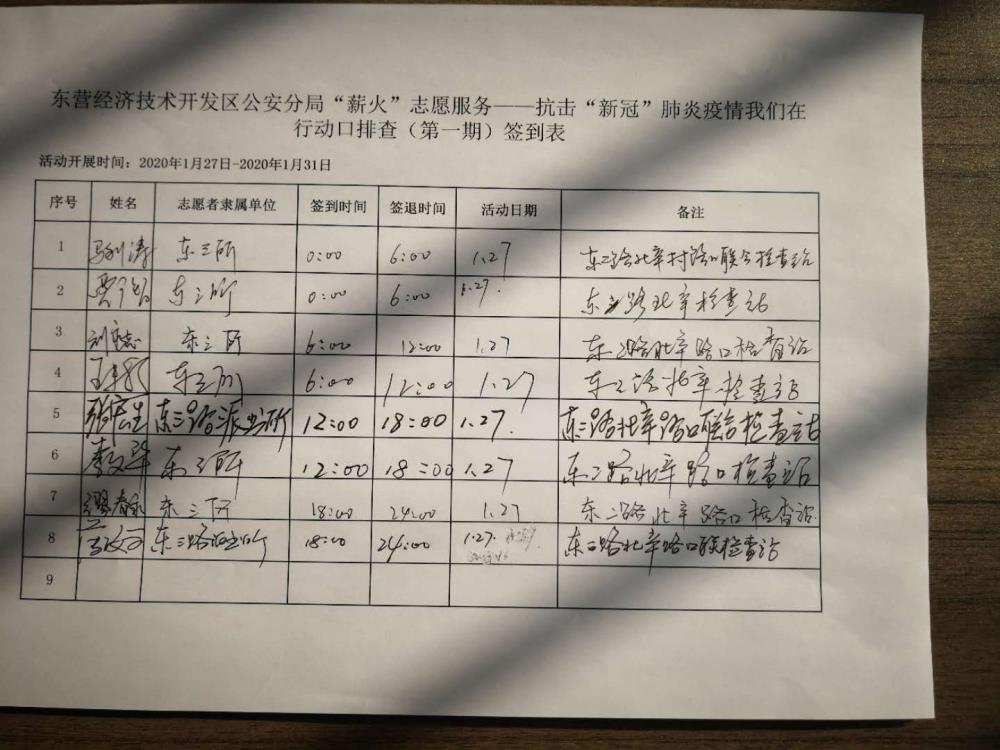 东营经济技术开发区公安分局“薪火”志愿服务——抗击“新冠”肺炎疫情我们在
行动口排查（第一期）签到表
活动开展时间：2020年1月27日-2020年1月31日
序号 姓名 志愿者隶属单位 签到时间 签退时间 活动日期 备注
1 东三所 0:00 6:00 1.27 东三路北辛村路口联合检查站
2 东三所 0:00 6:00 1.27. 东三路北辛检查站
3 东三所 6:00 12:00 1.27 东三路北辛路口检查站
4 东三所 6:00 12:00 1.27 东三路北辛检查站
5 张宏生 东三路派出所 12:00 18:00 1.27. 东三路北辛路口联合检查站
6 东三所 12:00 18:00 1.27 东三路北辛路口检查站
7 东三所 18:00 24:00 1.27 东三路北辛路口检查站
8 东三路派出所 18:00 24:00 1.27. 东三路北辛路口联检查站
9